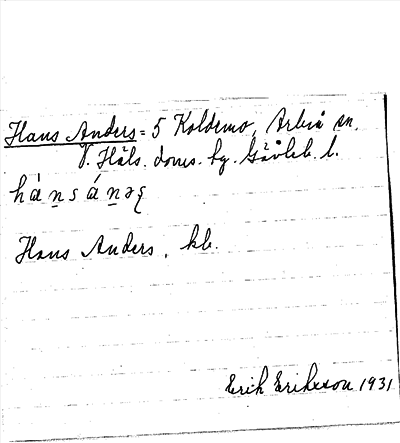 Hans Anders = 5 Koldemo, Arbrå sn.
V. Häls. doms. hg. Gävleb. l.
hánsánəʂ
Hans Anders, kb.
Erik Eriksson 1931